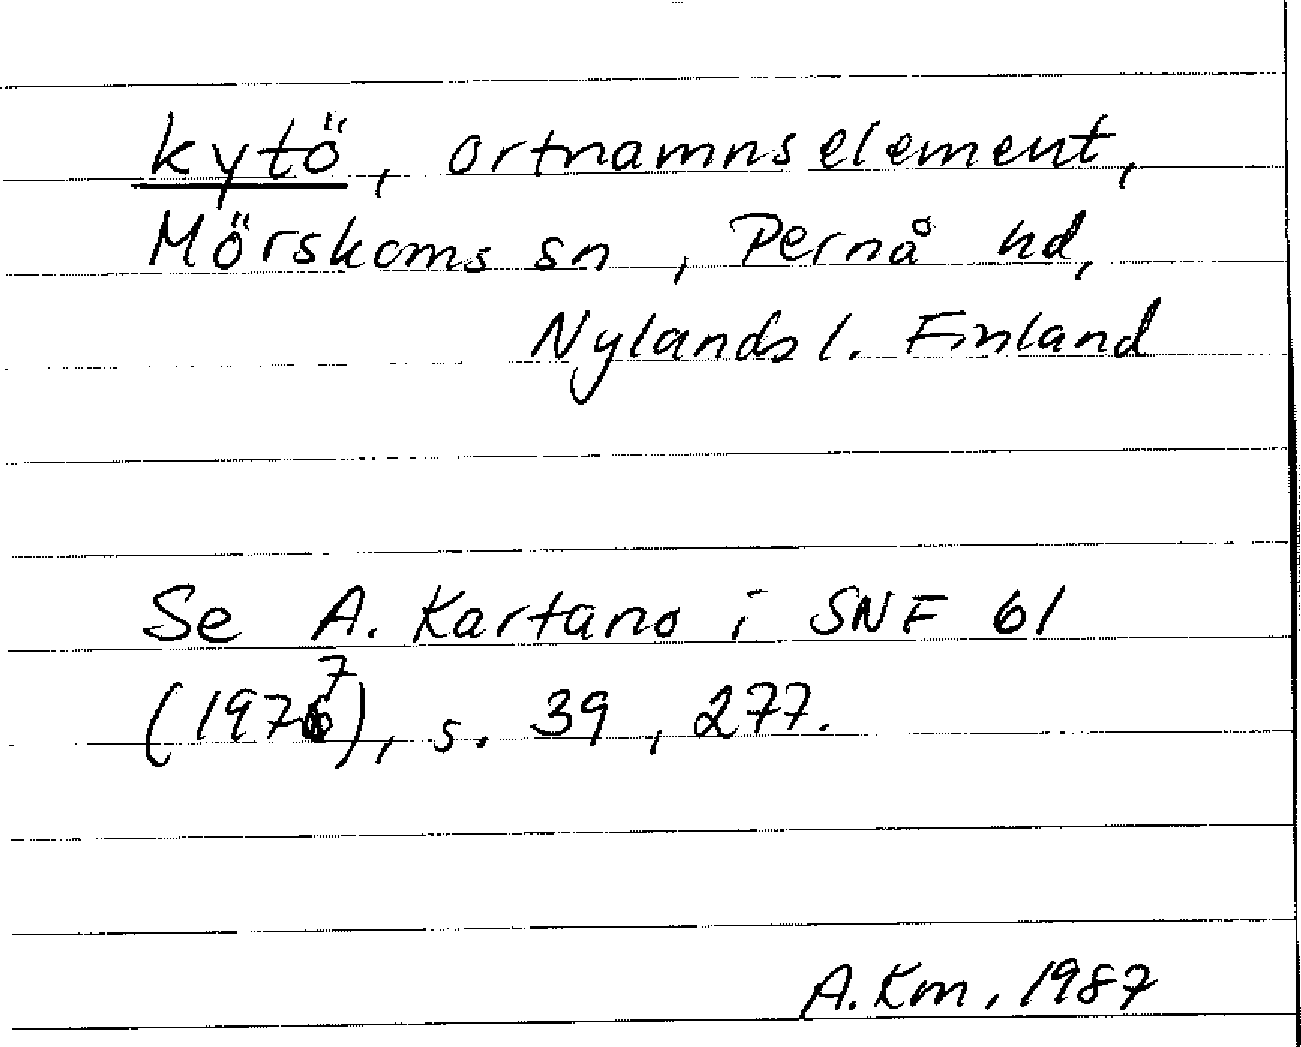 kytö, ortnamnselement,
Mörskoms sn, Pernå hd,
Nylands l. Finland
Se A. Kartano i SNF 61
(1977), s. 39, 277.
A. Km, 1987